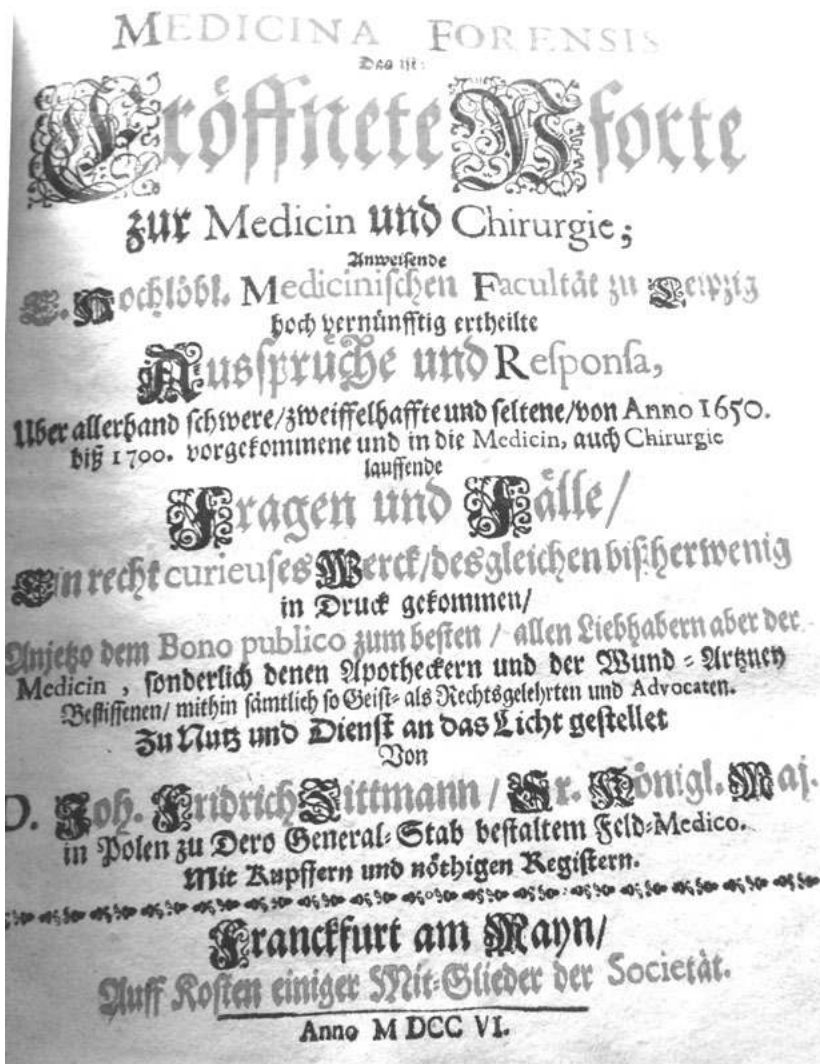 MEDICINA FORENSIS
Das ist:
Eröffnete Pforte
zur Medicin und Chirurgie;
Anweisende
E. Hochlöbl. Medicinischen Facultät zu Leipzig
hoch vernünfftig ertheilte
Aussprüche und Responsa,
Uber allerhand schwere/zweiffelhaffte und seltene/von Anno 1650.
biß 1700. vorgekommene und in die Medicin, auch Chirurgie
lauffende
Fragen und Fälle/
Ein recht curieuses Werck/desgleichen bißher wenig
in Druck gekommen/
Anjetzo dem Bono publico zum besten / allen Liebhabern aber der
Medicin, sonderlich denen Apotheckern und der Wund-Artzney
Beflissenen/ mithin sämtlich so Geist- als Rechtsgelehrten und Advocaten.
Zu Nutz und Dienst an das Licht gestellet
Von
D. Joh. Fridrich Zittmann/ Sr. Königl. Maj.
in Polen zu Dero General-Stab bestaltem Feld-Medico.
Mit Kupffern und nöthigen Registern.
Franckfurt am Mayn/
Auff Kosten einiger Mit-Glieder der Societät.
Anno M DCC VI.